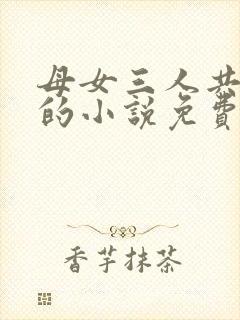 母女三人共
的小説免費
香芋抹茶